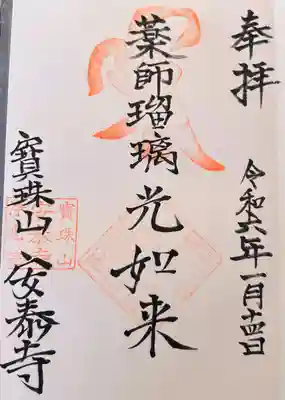 奉拝
令和六年一月十四日
薬師瑠璃光如来
寶珠山
寶珠山安泰寺